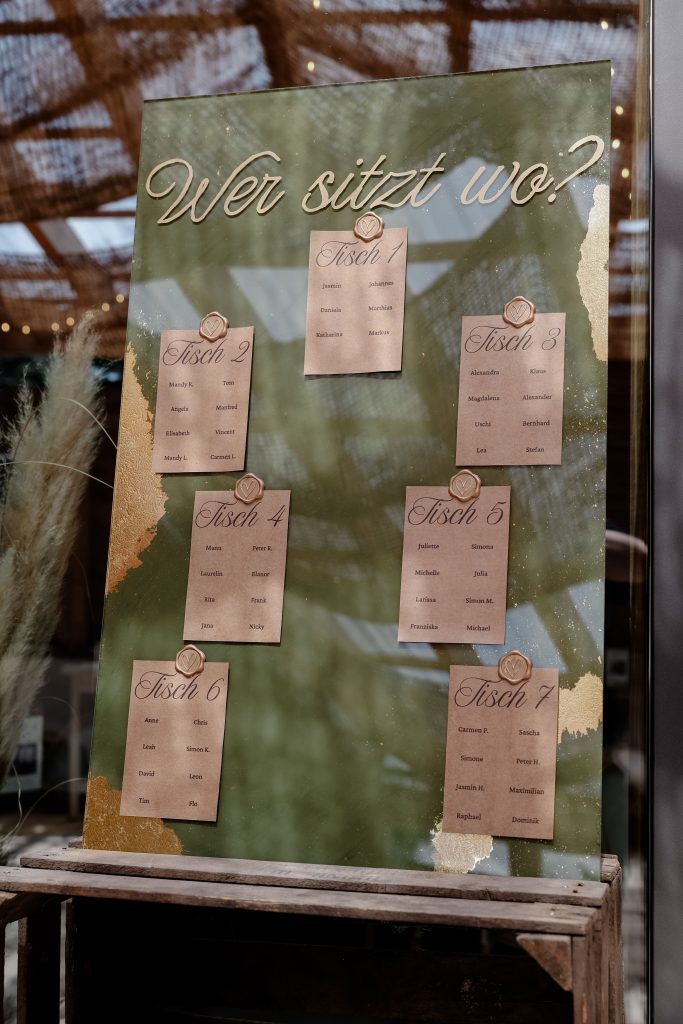 Wer sitzt wo?
Tisch 1
Jasmin Johannes
Daniela Matthias
Katharina Markus
Tisch 2
Mandy K. Tom
Angela Manfred
Elisabeth Vincent
Mandy L. Carmen L.
Tisch 3
Alexandra Klaus
Magdalena Alexander
Uschi Bernhard
Lea Stefan
Tisch 4
Manu Peter R.
Laurelin Eleanor
Rita Frank
Jana Nicky
Tisch 5
Juliette Simona
Michelle Julia
Larissa Simon M.
Franziska Michael
Tisch 6
Anne Chris
Leah Simon K.
David Leon
Tim Flo
Tisch 7
Carmen P. Sascha
Simone Peter H.
Jasmin H. Maximilian
Raphael Dominik